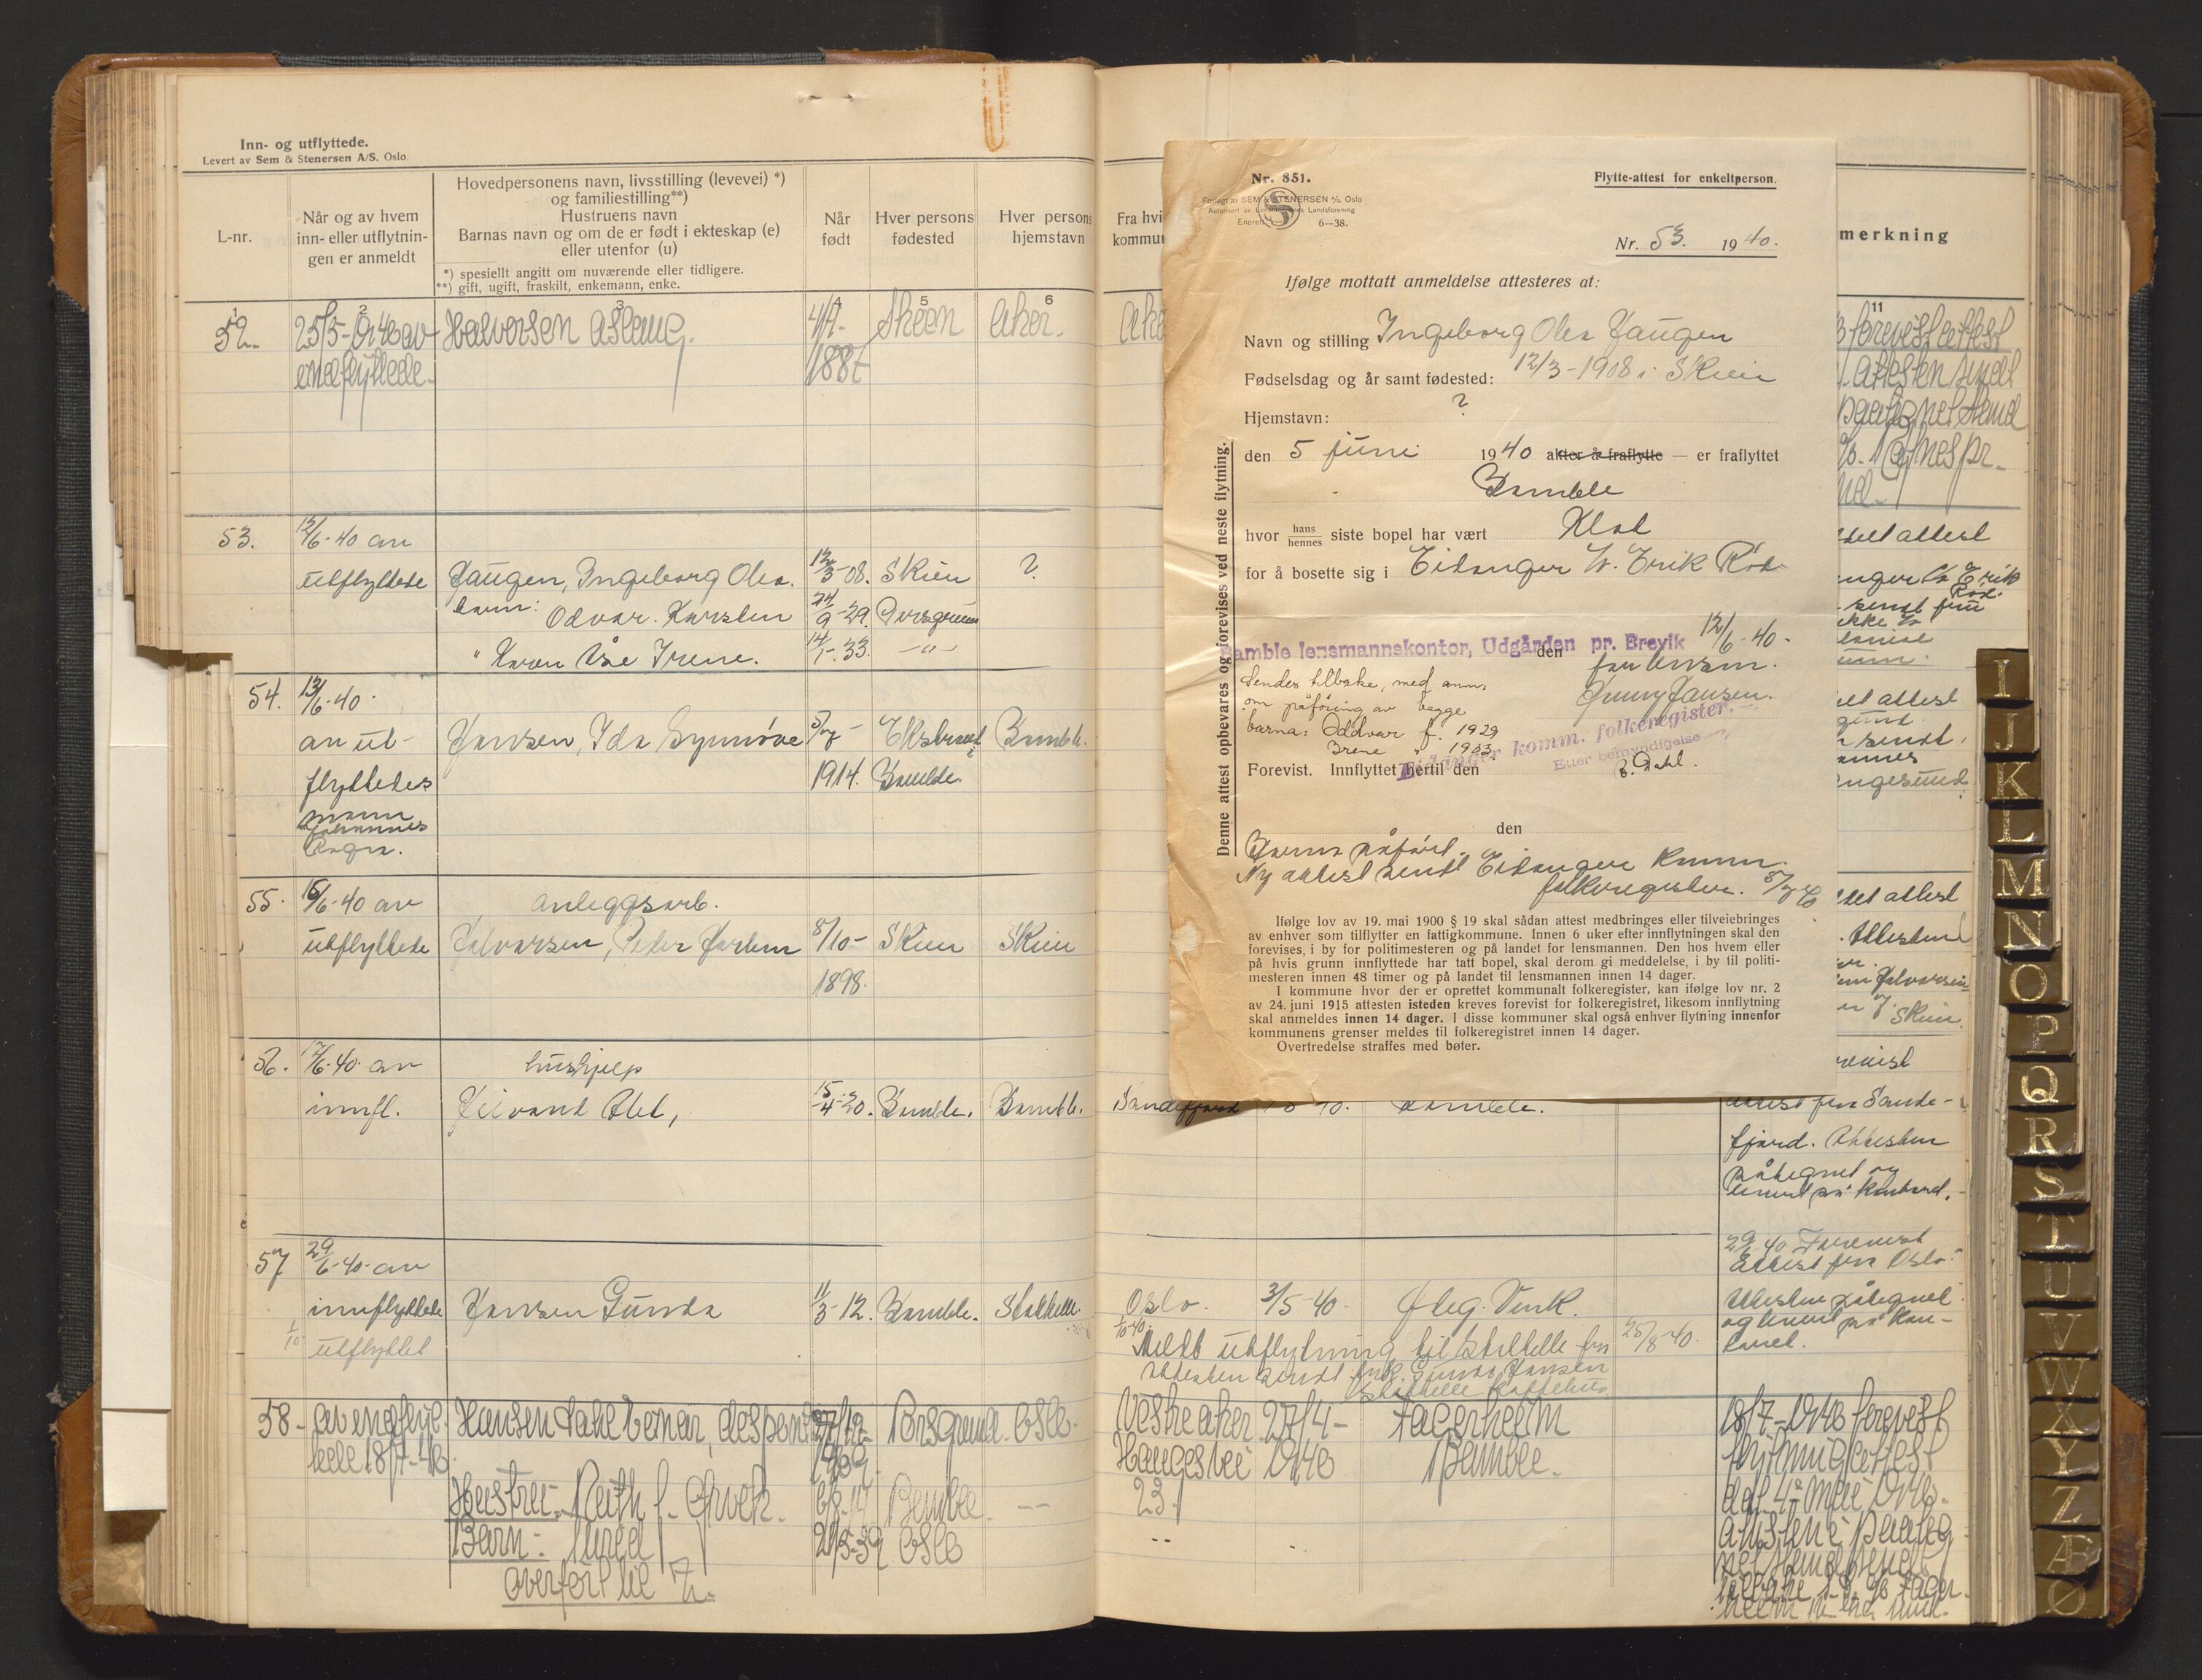 Inn- og utflyttede.
Levert av Sem & Stenersen A/S. Oslo.
L-nr.
Når og av hvem
inn- eller utflytnin-
gen er anmeldt
Hovedpersonens navn, livsstilling (levevei) *)
og familiestilling**)
Hustruens navn
Barnas navn og om de er født i ekteskap (e)
eller utenfor (u)
*) spesielt angitt om nuværende eller tidligere.
**) gift, ugift, fraskilt, enkemann, enke.
Når
født
Hver persons
fødested
Hver persons
hjemstavn
1 2 3 4 5 6
52. 25/5-1940 av Halvorsen Aslaug. 4/7- Skien Aker.
indflyttede. 1887
53. 12/6-40 av
utflyttede Haugen, Ingeborg Olea. 12/3-08. Skien ?
barn: Odvar. Karsten 24/9-29. Porsgrunn
" Karen Åse Irene. 14/1-33. -"-
54. 13/6-40.
av ut- Hansen, Ida Synnøve 5/7- Ekstrand Bamble.
flyttedes 1914. Bamble.
mann
Johannes
55. 15/6-40 av anleggsarb.
utflyttede Halvorsen, Peder 8/10- Skien Skien
1898.
56. 17/6-40. av hushjelp
innfl. 15/4-20. Bamble. Bamble.
57 29/6-40. av
innflyttede Hansen Gunda 11/3-12. Bamble. Stathelle.
1/10 utflyttet
58- av indflyt- Hansen Dahl Einar, 27/12- Porsgrund. Oslo.
tede 18/7-40. 1909.
Hustru: Ruth f. Ørvik. 6/8-14 Bamble. --
Barn: 21/5-39 Oslo
overført til H.
Fra hvi
kommun
Ake
Nr. 851.
Flytte-attest for enkeltperson.
Forlagt av SEM & STENERSEN A/S. Oslo
Autorisert av Lensmennenes Landsforening
Enerett. 6—38.
Nr. 53. 1940.
Ifølge mottatt anmeldelse attesteres at:
Navn og stilling Ingeborg Olea Haugen
Fødselsdag og år samt fødested: 12/3-1908 i Skien
Hjemstavn: ?
den 5 juni 1940 akter å fraflytte — er fraflyttet
Bamble
hvor hans/hennes siste bopel har vært
for å bosette sig i Eidanger v. Erik Rød.
Bamble lensmannskontor, Udgården pr. Brevik den 12/6-40.
for lensm.
Jenny Hansen.
Sendes tilbake, med anm.
om påføring av begge
barna: Oddvar f. 1929
Irene " 1933.
Eidanger komm. folkeregister.
Etter bemyndigelse
Forevist. Innflyttet hertil den
B. Dahl.
den
Barna påført.
Ny attest sendt Eidanger komm.
folkeregister. 8/7 40
Denne attest opbevares og forevises ved neste flytning.
Ifølge lov av 19. mai 1900 § 19 skal sådan attest medbringes eller tilveiebringes
av enhver som tilflytter en fattigkommune. Innen 6 uker efter innflytningen skal den
forevises, i by for politimesteren og på landet for lensmannen. Den hos hvem eller
på hvis grunn innflyttede har tatt bopel, skal derom gi meddelelse, i by til politi-
mesteren innen 48 timer og på landet til lensmannen innen 14 dager.
I kommune hvor der er oprettet kommunalt folkeregister, kan ifølge lov nr. 2
av 24. juni 1915 attesten isteden kreves forevist for folkeregistret, likesom innflytning
skal anmeldes innen 14 dager. I disse kommuner skal også enhver flytning innenfor
kommunens grenser meldes til folkeregistret innen 14 dager.
Overtredelse straffes med bøter.
merkning
11
forevist attest
Attesten sendt
attest
Erik
Rød.
sendt
attest
sendt.
attest
Attesten
Halvorsen
Skien.
Sandefjord Bamble.
attest fra Sande-
fjord. Attesten
påtegnet og
levert på kontoret.
29/6 40 Forevist
attest fra Oslo.
Oslo. 3/5-40. Attesten påtegnet
og levert på kon-
toret.
1/10-40.
Meldt utflytning til Stathelle fra 25/8-40.
attesten sendt Gunda Hansen
Stathelle Kaffehus
Vestre Aker 27/4- Fagerheim 18/7-1940 forevist
1940 Bamble. flytningsattest
23
dat. 4de mai 1940.
I
J
K
L
M
N
O
P
Q
R
S
T
U
V
W
X
Y
Z
Æ
Ø